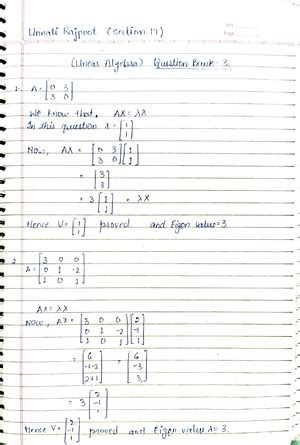 Unnati Rajpoot (Section-17)
(Linear Algebra) Question Bank-3.
1. A = [0 3
3 0]
We know that, AX = λX
In this question X = [1
1]
Now, AX = [0 3
3 0] [1
1]
= [3
3]
= 3 [1
1] = λX
Hence V = [1
1] proved and Eigen value = 3.
2. A = [3 0 0
0 1 -2
1 0 1]
AX = λX
Now, AX = [3 0 0
0 1 -2
1 0 1] [2
-1
1]
= [6
-1-2
2+1] = [6
-3
3]
= 3 [2
-1
1]
Hence V = [2
-1
1] proved and Eigen value λ = 3.